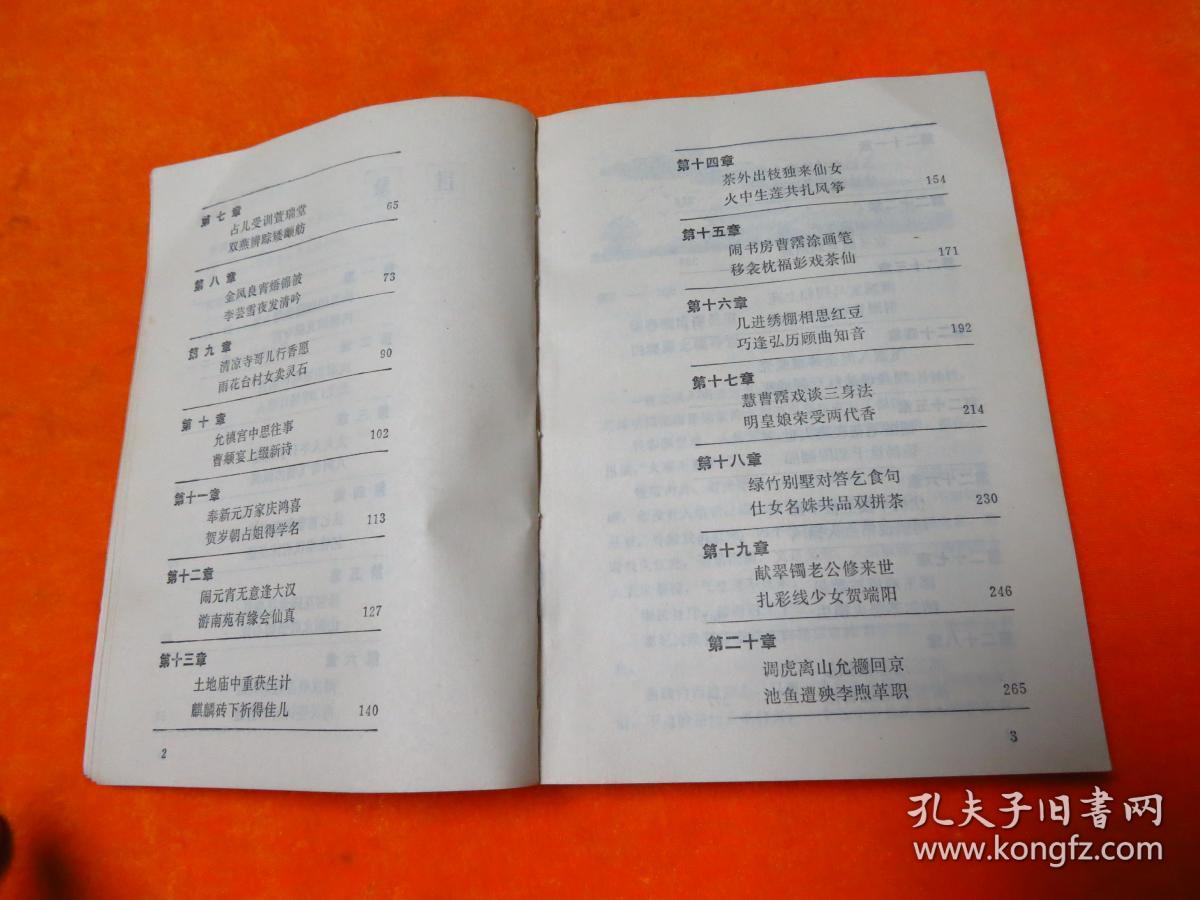 第七章
占儿受训萱瑞堂
双燕辨踪矮𩕳舫 65
第八章
金凤良宵焐锦被
李芸雪夜发清吟 73
第九章
清凉寺哥儿行香愿
雨花台村女卖灵石 90
第十章
允禛宫中思往事
曹頫宴上缀新诗 102
第十一章
奉新元万家庆鸿喜
贺岁朝占姐得学名 113
第十二章
闹元宵无意逢大汉
游南苑有缘会仙真 127
第十三章
土地庙中重获生计
麒麟砖下祈得佳儿 140
2
第十四章
茶外出枝独来仙女
火中生莲共扎风筝 154
第十五章
闹书房曹霑涂画笔
移衾枕福彭戏茶仙 171
第十六章
几进绣棚相思红豆
巧逢弘历顾曲知音 192
第十七章
慧曹霑戏谈三身法
明皇娘荣受两代香 214
第十八章
绿竹别墅对答乞食句
仕女名姝共品双拼茶 230
第十九章
献翠镯老公修来世
扎彩线少女贺端阳 246
第二十章
调虎离山允禵回京
池鱼遭殃李煦革职 265
3
孔夫子旧书网
www.kongfz.com